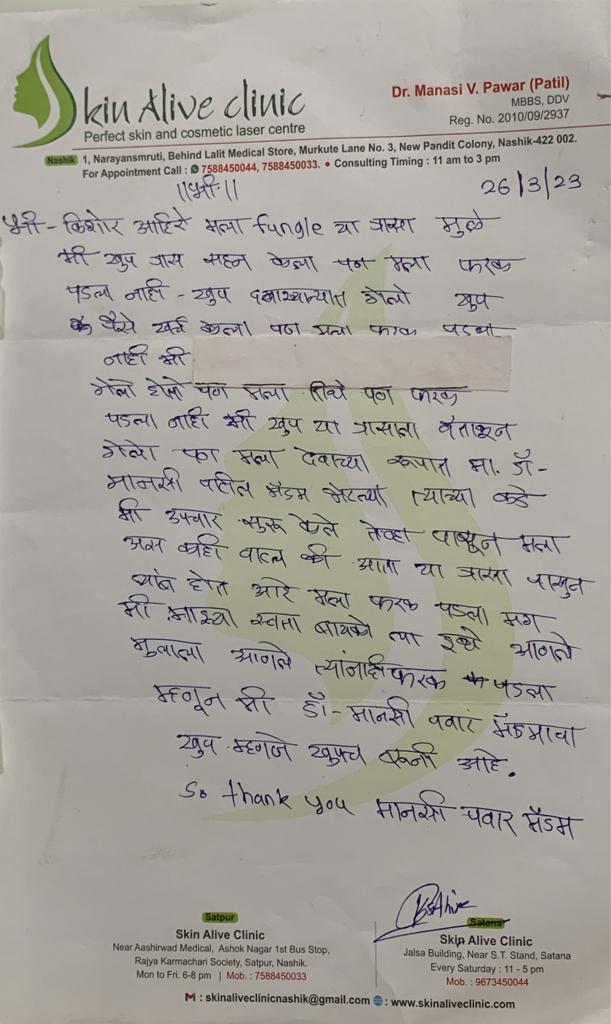 Skin Alive clinic
Perfect skin and cosmetic laser centre
Dr. Manasi V. Pawar (Patil)
MBBS, DDV
Reg. No. 2010/09/2937
Nashik 1, Narayansmruti, Behind Lalit Medical Store, Murkute Lane No. 3, New Pandit Colony, Nashik-422 002.
For Appointment Call : 7588450044, 7588450033. • Consulting Timing : 11 am to 3 pm
||श्री||
26/3/23
श्री - किशोर आहिरे मला fungle या त्रासा मुळे
मी खुप त्रास सहन केला पन मला फरक
पडला नाही - खुप दवाखान्यात गेलो खुप
पैसे खर्च केला पण मला फरक पडला
नाही मी
गेलो होतो पण मला तिथे पण फरक
पडला नाही मी खुप या त्रासाला कंताळून
गेलो मला देवाच्या रूपात मा. डॉ-
मानसी पाटील मॅडम भेटल्या त्याच्या कडे
मी उपचार सुरू केले तेव्हा पासून मला
अस वाटल की आता या त्रासा पासुन
होत आहे मला फरक पडला मग
मी माझ्या स्वता बायको त्या इथे आणले
मुलाला आणले त्यांनाही फरक पडला
म्हणून मी डॉ- मानसी पवार मॅडमाचा
खुप म्हणजे खुपच ऋनी आहे.
So thank you मानसी पवार मॅडम
Satpur
Skin Alive Clinic
Near Aashirwad Medical, Ashok Nagar 1st Bus Stop,
Rajya Karmachari Society, Satpur, Nashik.
Mon to Fri. 6-8 pm | Mob. : 7588450033
Satana
Skin Alive Clinic
Jalsa Building, Near S.T. Stand, Satana
Every Saturday : 11 - 5 pm
Mob. : 9673450044
M : skinaliveclinicnashik@gmail.com : www.skinaliveclinic.com